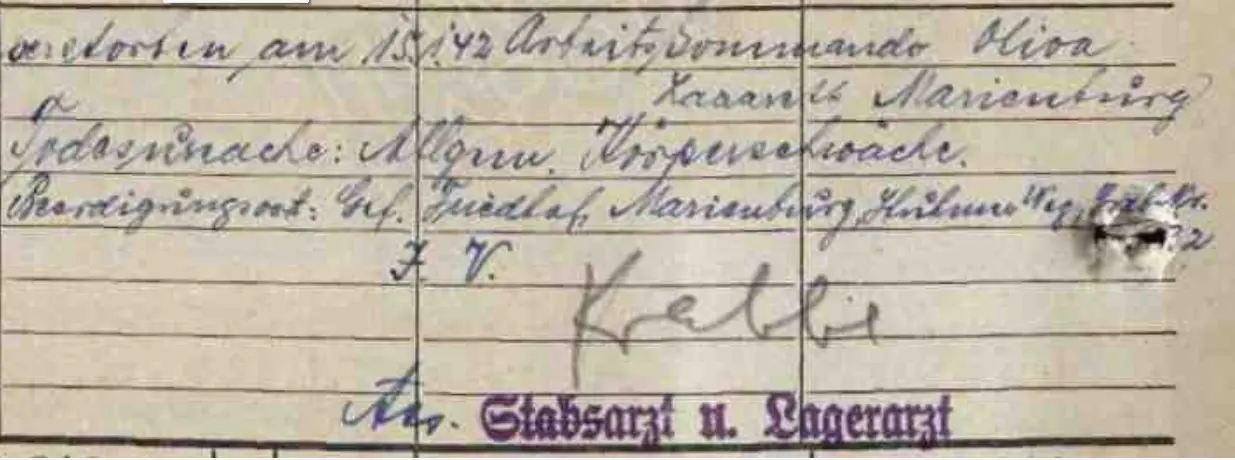 gestorben am 15.1.42 Arbeitskommando Oliva
Lazarett Marienburg
Todesursache: Allgem. Körperschwäche.
Beerdigungsort: Gef. Friedhof, Marienburg, Weg, Grab Nr.
2
I. V.
Krebbe
Stabsarzt u. Lagerarzt